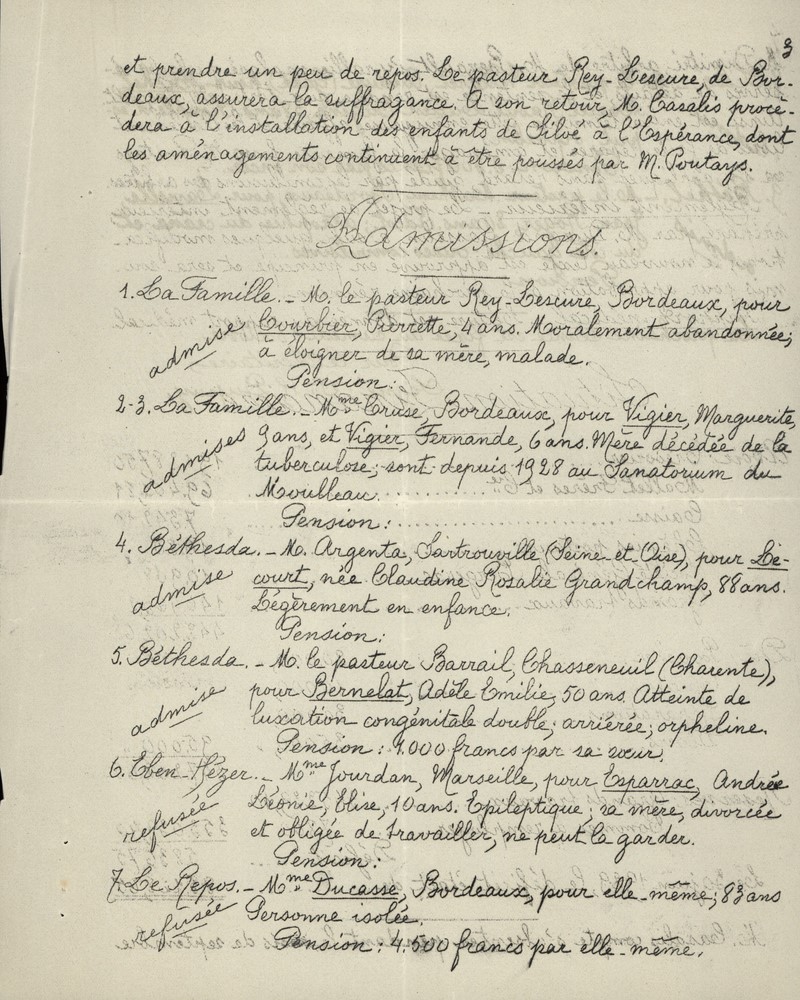 3
et prendre un peu de repos. Le pasteur Rey-Lescure, de Bor-
deaux, assurera la suffragance. A son retour, M. Casalis procé-
dera à l'installation des enfants de Siloé à l'Espérance, dont
les aménagements continuent à être poussés par M. Poutays.
Admissions.
1. La Famille. - M. le pasteur Rey-Lescure, Bordeaux, pour
admise Courbier, Pierrette, 4 ans. Moralement abandonnée;
à éloigner de sa mère, malade.
Pension:
2-3. La Famille. - Mme Cruse, Bordeaux, pour Vigier, Marguerite,
admises 9 ans, et Vigier, Fernande, 6 ans. Mère décédée de la
tuberculose; sont depuis 1928 au Sanatorium du
Moulleau..........
Pension:..........
4. Béthesda. - M. Argenta, Sartrouville (Seine-et-Oise), pour Lé-
admise court, née Claudine Rosalie Grandchamp, 88 ans.
Légèrement en enfance.
Pension:
5. Béthesda. - M. le pasteur Barrail, Chasseneuil (Charente),
admise pour Bernelat, Adèle Emilie, 50 ans. Atteinte de
luxation congénitale double; arriérée; orpheline.
Pension: 1.000 francs par sa sœur.
6. Eben-Hézer. - Mme Jourdan, Marseille, pour Esparrac, Andrée
refusée Léonie, Elise, 10 ans. Epileptique; sa mère, divorcée
et obligée de travailler, ne peut la garder.
Pension:
7. Le Repos. - Mme Ducasse, Bordeaux, pour elle-même; 83 ans
refusée Personne isolée.
Pension: 4.500 francs par elle-même.